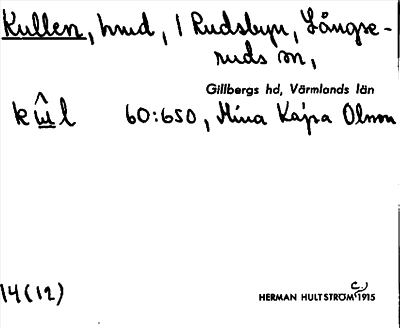 Kullen, hmd, 1 Rudsbyn, Långse-
ruds sn,
Gillbergs hd, Värmlands län
60:650, Mina Kajsa Olsson
14(12)
HERMAN HULTSTRÖM 1915